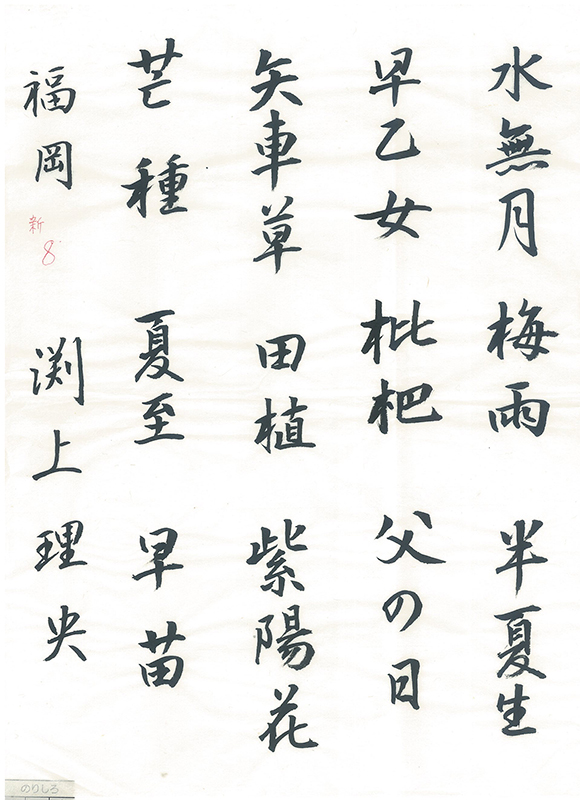 水無月 梅雨 半夏生
早乙女 枇杷 父の日
矢車草 田植 紫陽花
芒種 夏至 早苗
福岡 新8 渕上理央
のりしろ